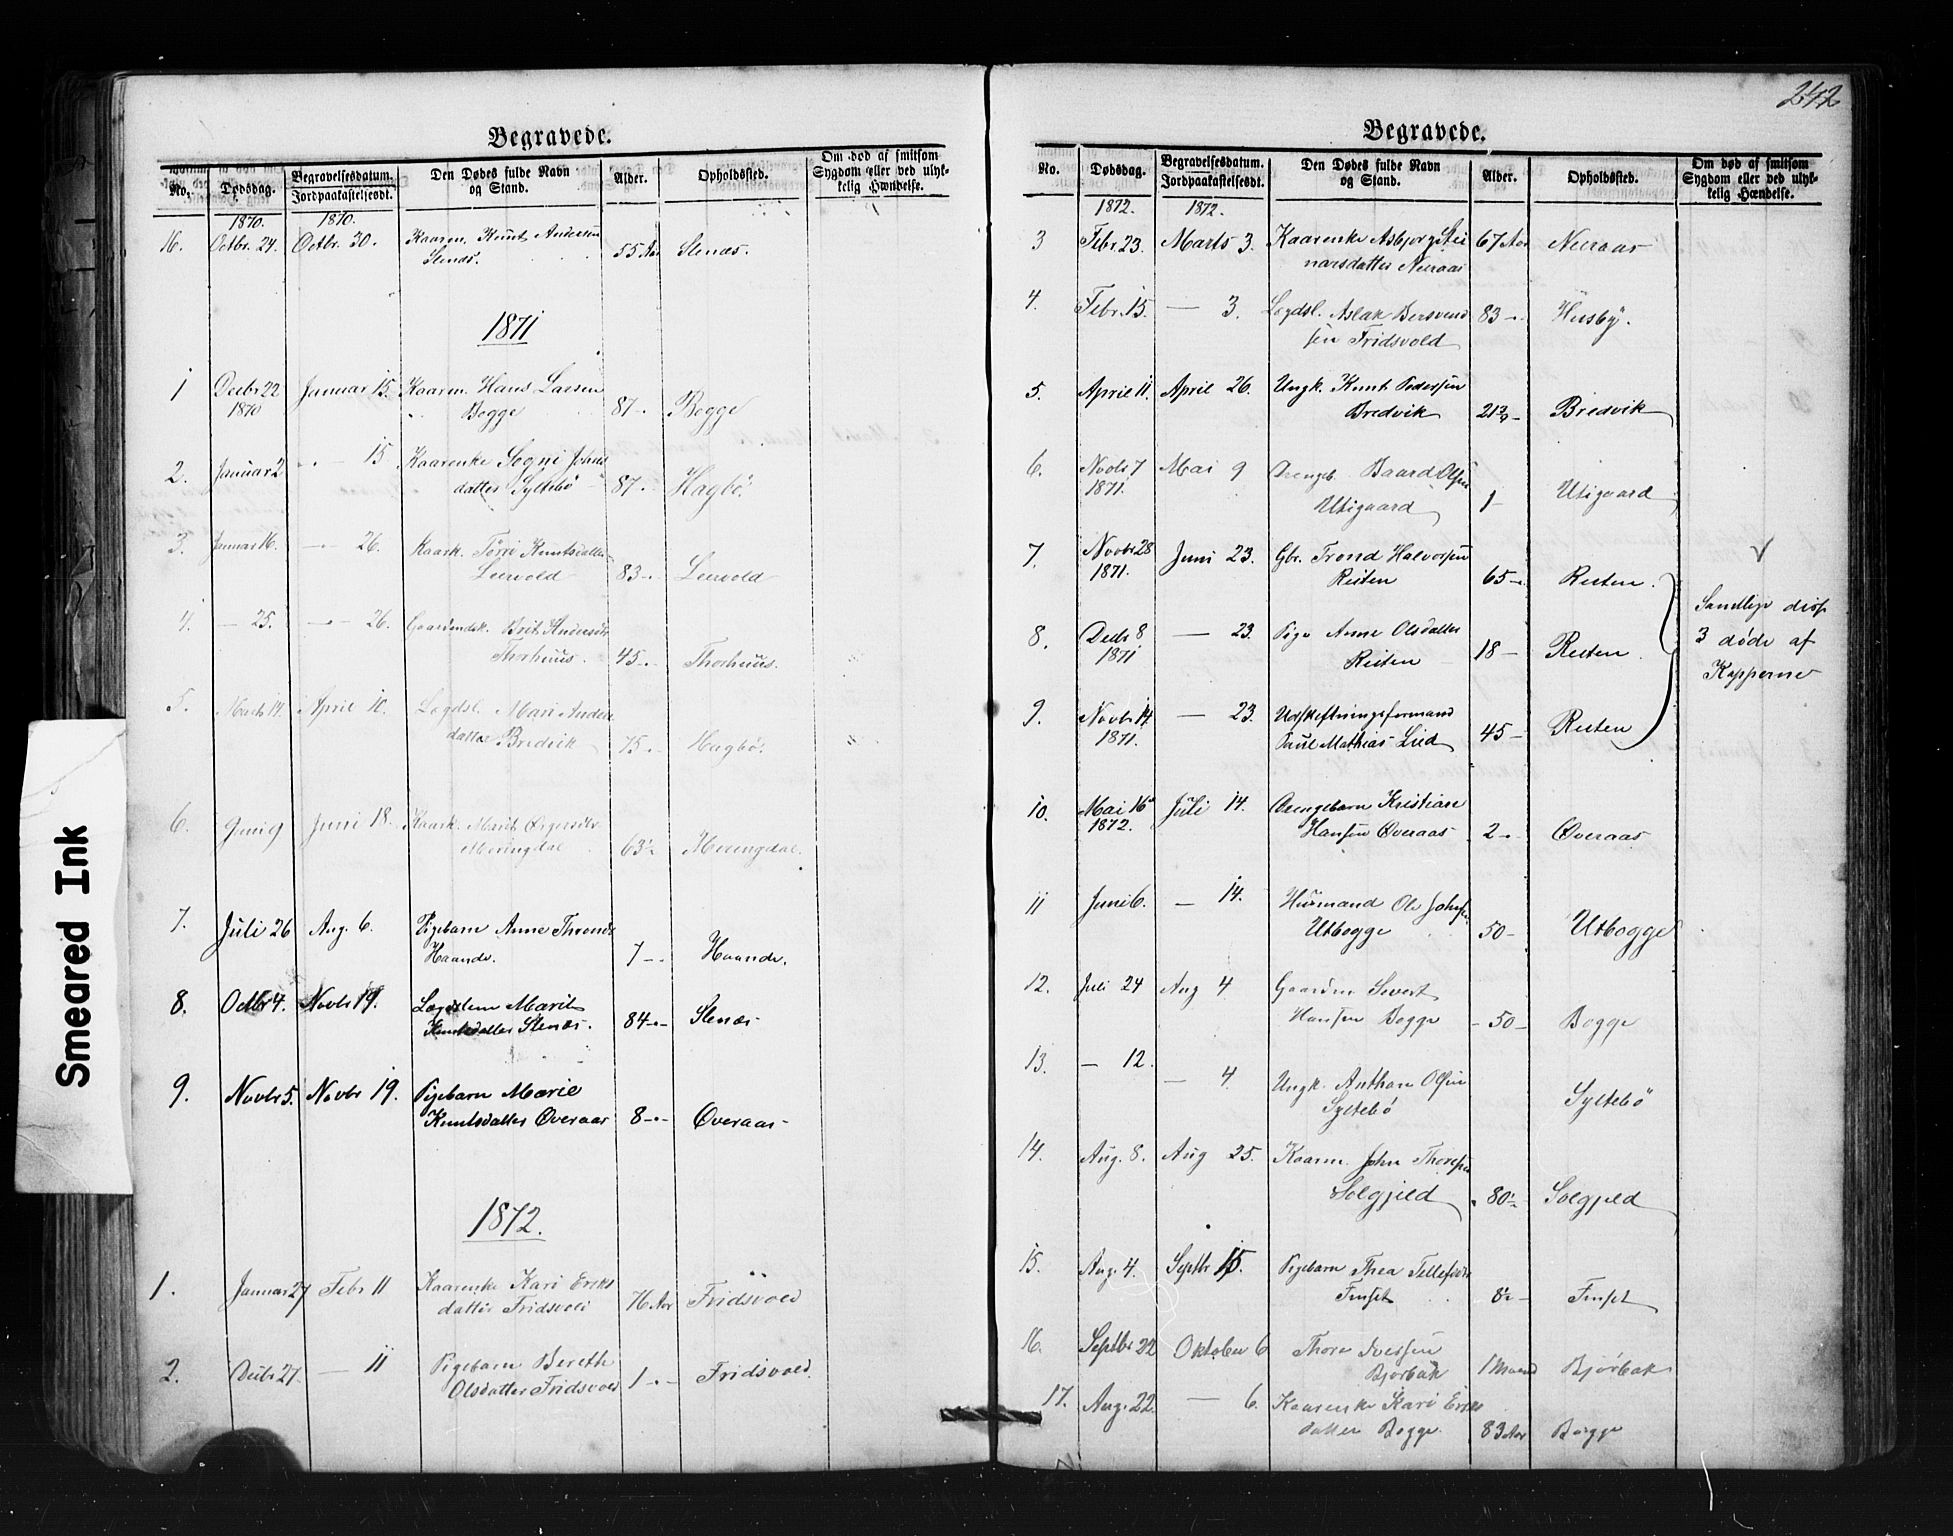 Begravede.
No. Dødsdag. Begravelsesdatum. Jordpaakastelsesdt. Den Dødes fulde Navn og Stand. Alder. Opholdssted. Om død af smitsom Sygdom eller ved ulykkelig Hændelse.
1870. 1870.
16. Octbr. 24. Octbr. 30. Kaarm. Knut Andersen 55 Aar Slenæs.
Slenæs.
1871
1 Decbr 22 Januar 15. Kaarm. Hans Larsen
1870 Bogge 87 Bogge
2. Januar 2 15 Kaarenke Sogni Johns
datter Syltebø 87 Hagbø.
3. Januar 16. 26. Kaark. Tørri Knutsdatter
Leervold 83 Leervold
4. — 25. 26. Brit Andersdr
Thorhuus. 45 Thorhuus.
5. Marts 14. April 10. Logdsl. Mari Anders
datter Bredvik 75 Hagbø.
6. Juni 9 Juni 18. Kaark. Marit
Meringdal 63 Meringdal.
7. Juli 26 Aug. 6. Pigebarn Anne Thronds
Haande. 7 Haande.
8. Octbr 4. Novbr 19. Logdslem Marit
Knutsdatter Slenæs. 84 Slenæs
9. Novbr 5. Novbr 19. Pigebarn Marie
Knutsdatter Øveraas 8 Øveraas
1872.
1. Januar 27 Febr 11 Kaarenke Kari Eriks
datter Fridsvold 76 Aar Fridsvold
2. Decbr 27. — 11 Pigebarn Bereth
Olsdatter Fridsvold 1 Fridsvold.
242
Begravede.
No. Dødsdag. Begravelsesdatum. Jordpaakastelsesdt. Den Dødes fulde Navn og Stand. Alder. Opholdssted. Om død af smitsom Sygdom eller ved ulykkelig Hændelse.
1872. 1872.
3 Febr 23. Marts 3. Kaarenke Asbjørg Stei 67 Aar Neeraas
narsdatter Neeraas
4. Febr. 15. — 3. Logdsl. Aslak Bersvend 83 Husby.
sen Fridsvold
5. April 11. April 26. Ungk. Knut Pedersen
Bredvik 21 Bredvik
6. Novbr 7 Mai 9 Drengeb. Baard Olsen
1871. Utigaard 1 Utigaard
7. Novbr 28 Juni 23. Gbr. Trond Halvorsen
1871. Reiten 65 Reiten.
8. Decbr 8 — 23. Pige Anne Olsdatter
1871 Reiten 18 — Reiten.
Samtlige disse
3 døde af
Kopperne
9. Novbr 14 — 23. Udskiftningsformand
1871. Paul Mathias Lied 45 — Reiten
10. Mai 16 Juli 14. Drengebarn Kristian
1872. Hansen Øveraas 2 Øveraas
11 Juni 6. — 14. Husmand Ole Johnsen
Utbogge 50 — Utbogge
12. Juli 24 Aug 4 Gaardm. Sivert
Hansen Bogge 50 — Bogge
13. — 12. — 4. Ungk. Anthon Olsen
Syltebø Syltebø
14. Aug. 8. Aug 25. Kaarm. John Thoresen
Solgjeld 80 Solgjeld
15. Aug. 4. Septbr 15. Pigebarn Thea Tellefsdr
Finset 8 Finset
16. Septbr 22 Oktober 6 Thore Iversen
Bjørbak 1 Maaned Bjørbak
17. Aug. 22. — 6. Kaarenke Kari Eriks
datter Bogge 83 Aar Bogge
Smeared Ink